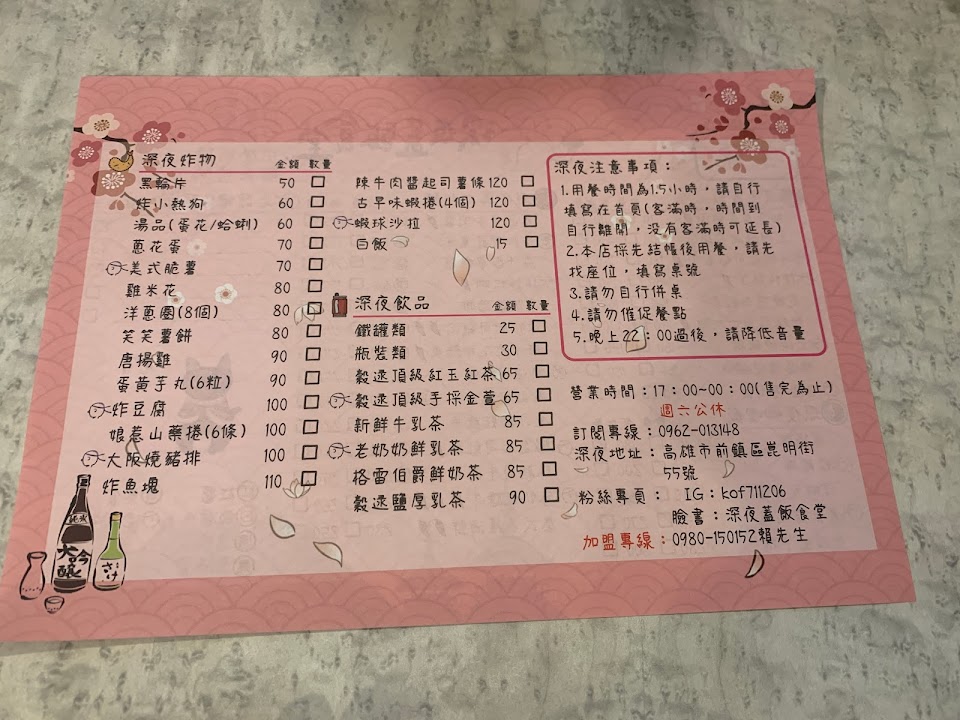 深夜炸物 金額 數量
黑輪片 50
炸小熱狗 60
湯品(蛋花/蛤蜊) 60
蔥花蛋 70
美式脆薯 70
雞米花 80
洋蔥圈(8個) 80
笑笑薯餅 80
唐揚雞 90
蛋黃芋丸(6粒) 90
炸豆腐 100
娘惹山藥捲(6條) 100
大阪燒豬排 100
炸魚塊 110
陳牛肉醬起司薯條 120
古早味蝦捲(4個) 120
蝦球沙拉 120
白飯 15
深夜飲品 金額 數量
鐵罐類 25
瓶裝類 30
穀逐頂級紅玉紅茶 65
穀逐頂級手採金萱 65
新鮮牛乳茶 85
老奶奶鮮乳茶 85
格雷伯爵鮮奶茶 85
穀逐鹽厚乳茶 90
深夜注意事項：
1.用餐時間為1.5小時，請自行
填寫在首頁(客滿時，時間到
自行離開，没有客滿時可延長)
2.本店採先結帳後用餐，請先
找座位，填寫桌號
3.請勿自行併桌
4.請勿催促餐點
5.晚上22：00過後，請降低音量
營業時間：17：00~00：00(售完為止)
週六公休
訂閱專線：0962-013148
深夜地址：高雄市前鎮區崑明街
55號
粉絲專頁： IG：kof711206
臉書：深夜蓋飯食堂
加盟專線：0980-150152賴先生
純米
大吟釀
さけ